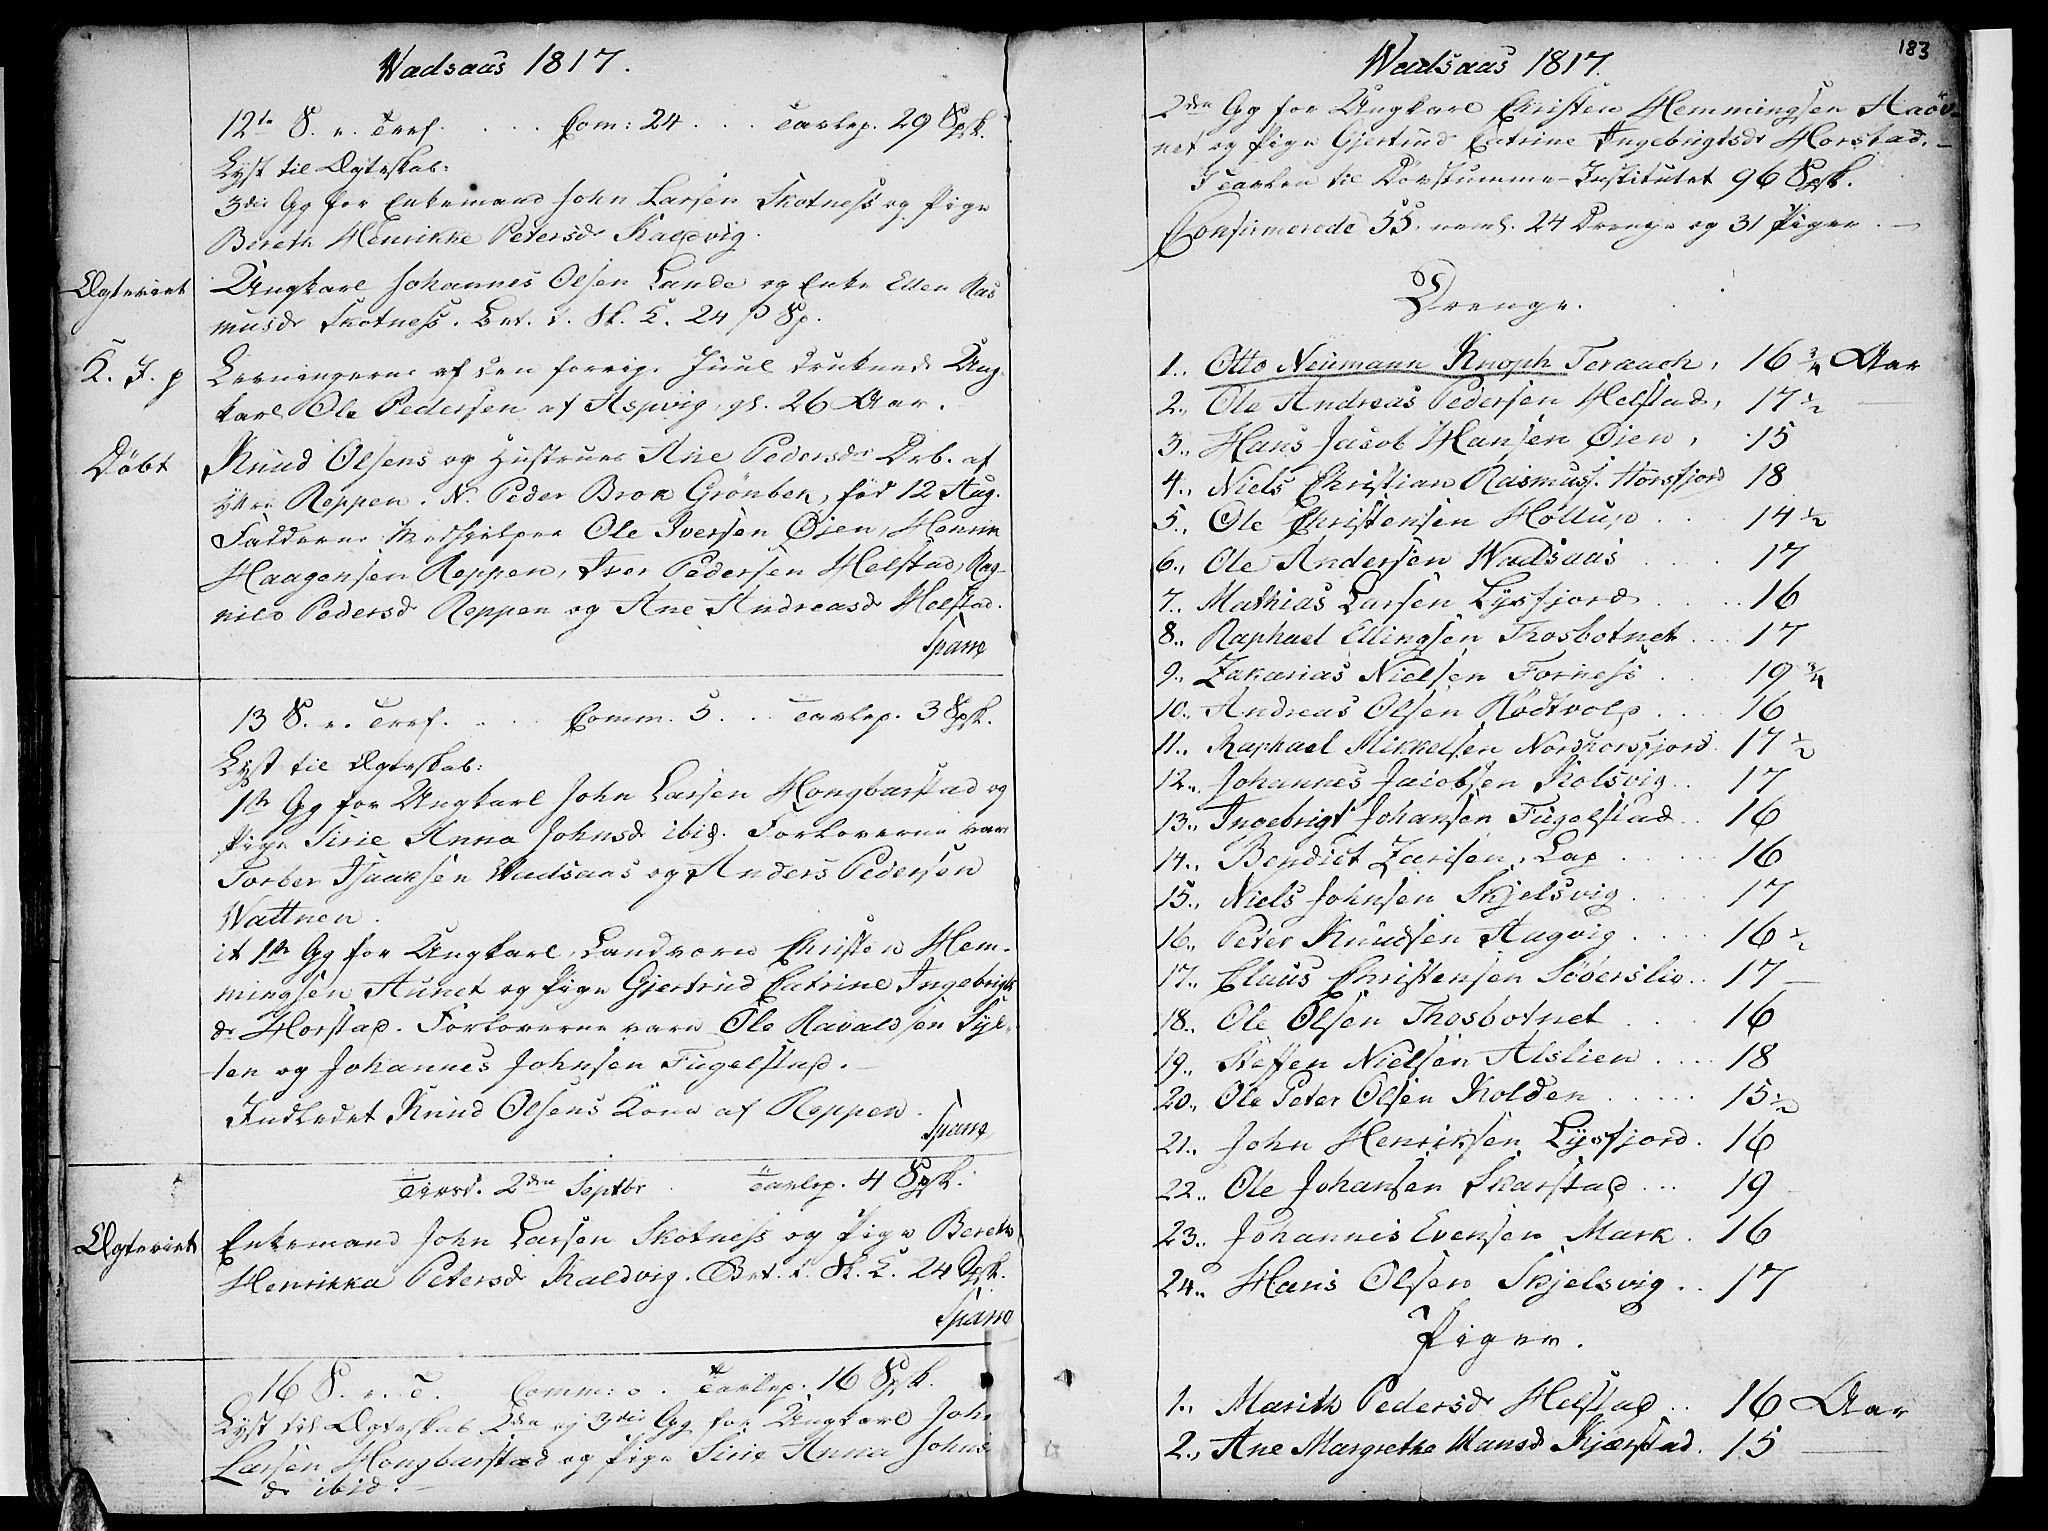 Wadsaas 1817.
12te S. e. Tref. . . . Com: 24 . . . Tavlep. 29 Spsk.
Lyst til Ægteskab:
3die Gg for Enkemand John Larsen Skotness og Pige
Bereth Henrikke Petersdr Kaldvig.
Ægteviet
Ungkarl Johannes Olsen Lande og Enke Ellen Ras
musdr Skotness. Brt. t. Sk. K. 24 β Sp.
K. J. p
Levningerne af den forrige Juul druknede Ung-
karl Ole Pedersen af Aspvig, gl. 26 Aar.
Döbt
Knud Olsens og Hustrues Ane Pedersdr Drb. af
yttre Reppen. N. Peder Brok Grönbek, föd 12 Aug.
Fadderne Medhjelper Ole Iversen Öien, Henrik
Haagensen Reppen, Iver Pedersen Helstad, Rag-
nild Pedersdr Reppen og Ane Andreasdr Helstad.
Spam
13 S. e. Tref. . . . Comm. 5 . . . Tavlep. 3 Spsk.
Lyst til Ægteskab:
1ste Gg for Ungkarl John Larsen Hongbarstad og
Pige Sirie Anna Johnsdr ibid. Forloverne vare
Torber Isaaksen Wadsaas og Anders Pedersen
Wattnen.
it 1ste Gg for Ungkarl, Landværn Christen Hem-
mingsen Aunet og Pige Gjertrud Catrine Ingebrigts
dr Horstad. Forloverne vare Ole Ravaldsen Syl-
ten og Johannes Johnsen Fugelstad.
Indledet Knud Olsens Kone af Reppen.
Spam
Tirsd. 2den Septbr . Tavlep. 4 Spsk.
Ægteviet
Enkemand John Larsen Skotness og Pige Bereth
Henrikka Petersdr Kaldvig. Brt. t. Sk. K. 24 Spsk.
Spam
16 S. e. T. Comm: 0. Tavlep. 16 Spsk.
Lyst til Ægteskab 2den og 3die Gg for Ungkarl John
Larsen Hongbarstad og Pige Sirie Anna Johns
dr ibid.
Wadsaas 1817.
183
2den Gg for Ungkarl Christen Hemmingsen
net og Pige Gjertrud Catrine Ingebrigtsdr Horstad.
I Tavlen til Dövstumme-Institutet 96 Spsk.
Confirmerede 55, neml. 24 Drenge og 31 Piger.
Drenge.
1., Otto Neumann Knoph Teraach, 16 3/4 Aar
2., Ole Andreas Pedersen Helstad, 17 1/2
3., Hans Jacob Hansen Öien, 15
4., Niels Christian Rasmus. Horsfjord 18
5., Ole Christensen Höllup . . 14 1/2
6., Ole Andersen Wadsaas . . 17
7., Mathias Larsen Lysfjord . . 16
8., Raphael Ellingsen Thosbotnet . . 17
9., Zakarias Nielsen Forness . . 19 3/4
10., Andreas Olsen Rödtvold . . 16
11., Raphael Mikkelsen Nordhorsfjord 17 1/2
12., Johannes Jacobsen Kolsvig . . 17
13., Ingebrigt Johansen Fugelstad . . 16
14., Bendict Zarisen, Lap . . 16
15., Niels Johnsen Skjelsvig . . 17
16., Peter Knudsen Aagvig . . 16 1/2
17., Claus Christensen Söberslie . . 17
18., Ole Olsen Thosbotnet . . 16
19., Steffen Nielsen Alslien . . 18
20., Ole Peter Olsen Kolden . . 15 1/2
21., John Henriksen Lysfjord . 16
22., Ole Johansen Skarstad . . 19
23., Johannis Evensen Mark . 16
24., Hans Olsen Skjelsvig . . 17
Piger.
1., Marith Pedersdr Helstad . . 16 Aar
2., Ane Margrethe Hansdr Kjærstad . 15